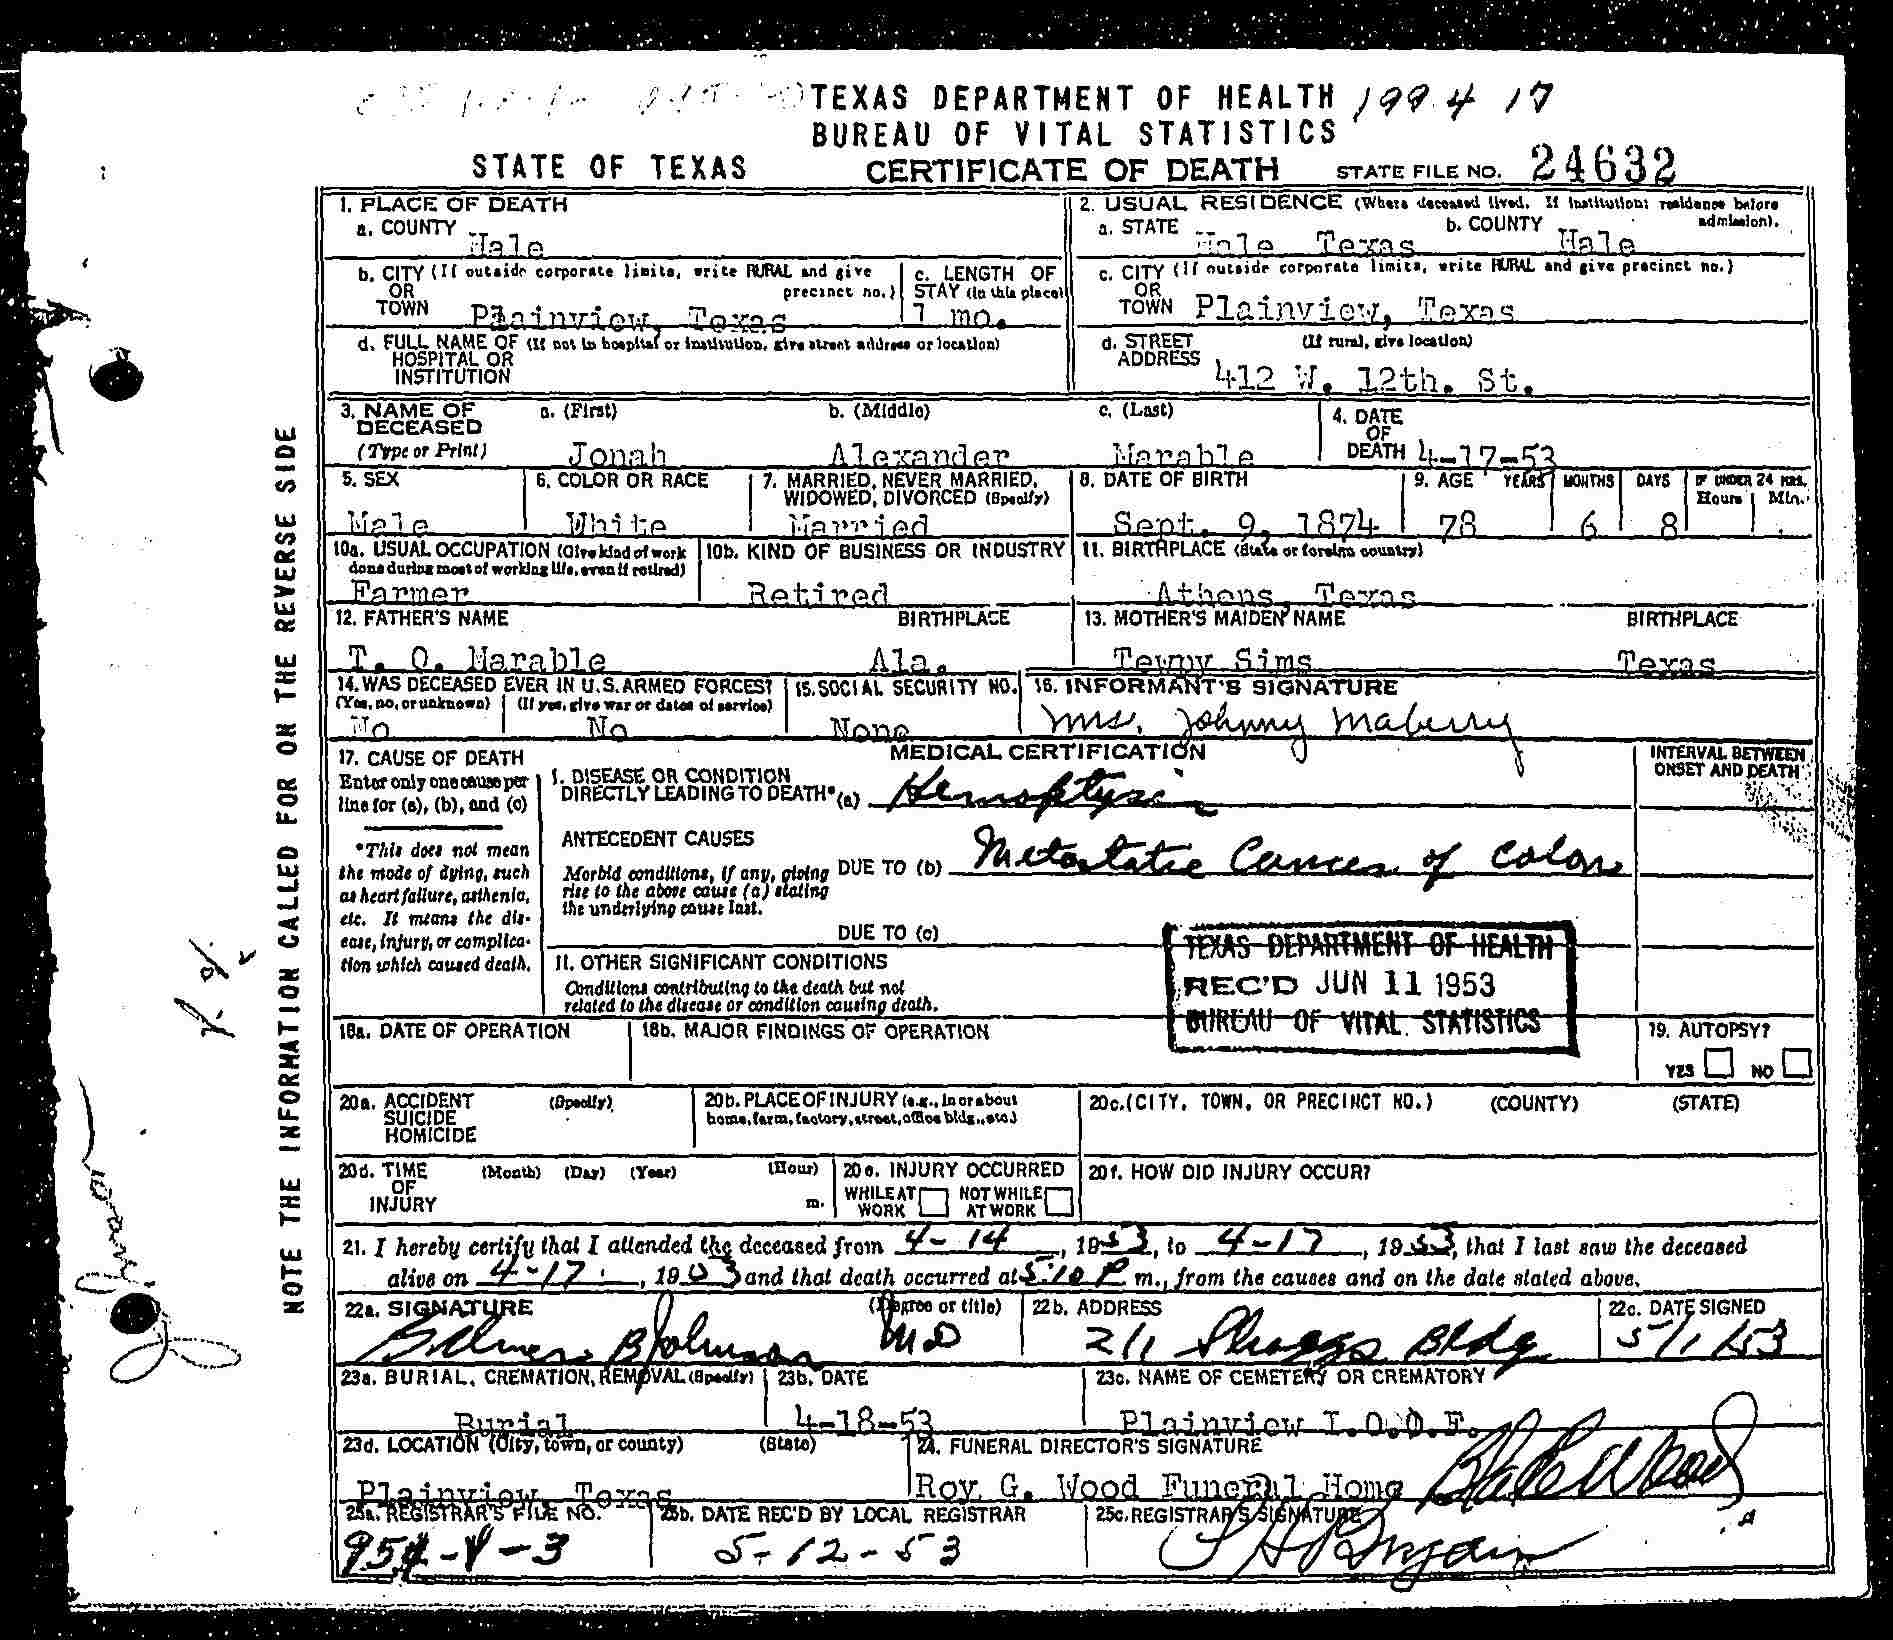 TEXAS DEPARTMENT OF HEALTH 199 4 17
BUREAU OF VITAL STATISTICS
STATE OF TEXAS CERTIFICATE OF DEATH STATE FILE NO. 24632
NOTE THE INFORMATION CALLED FOR ON THE REVERSE SIDE
1. PLACE OF DEATH
a. COUNTY Hale
2. USUAL RESIDENCE (Where deceased lived. If institution: residence before admission).
a. STATE Hale Texas b. COUNTY Hale
b. CITY (If outside corporate limits, write RURAL and give precinct no.)
OR
TOWN Plainview, Texas
c. LENGTH OF STAY (in this place)
1 mo.
c. CITY (If outside corporate limits, write RURAL and give precinct no.)
OR
TOWN Plainview, Texas
d. FULL NAME OF (If not in hospital or institution, give street address or location)
HOSPITAL OR
INSTITUTION
d. STREET (If rural, give location)
ADDRESS 412 W. 12th. St.
3. NAME OF DECEASED
(Type or Print)
a. (First) b. (Middle) c. (Last)
Jonah Alexander Marable
4. DATE
OF
DEATH 4-17-53
5. SEX
Male
6. COLOR OR RACE
White
7. MARRIED, NEVER MARRIED,
WIDOWED, DIVORCED (Specify)
Married
8. DATE OF BIRTH
Sept. 9, 1874
9. AGE YEARS MONTHS DAYS IF UNDER 24 HRS.
Hours Min.
78 6 8
10a. USUAL OCCUPATION (Give kind of work
done during most of working life, even if retired)
Farmer
10b. KIND OF BUSINESS OR INDUSTRY
Retired
11. BIRTHPLACE (State or foreign country)
Athens, Texas
12. FATHER'S NAME BIRTHPLACE
T. O. Marable Ala.
13. MOTHER'S MAIDEN NAME BIRTHPLACE
Tewny Sims Texas
14. WAS DECEASED EVER IN U.S. ARMED FORCES?
(Yes, no, or unknown) (If yes, give war or dates of service)
No No
15. SOCIAL SECURITY NO.
None
16. INFORMANT'S SIGNATURE
Mrs. Johnny Maberry
17. CAUSE OF DEATH
Enter only one cause per
line for (a), (b), and (c)
*This does not mean
the mode of dying, such
as heart failure, asthenia,
etc. It means the dis-
ease, injury, or complica-
tion which caused death.
MEDICAL CERTIFICATION
INTERVAL BETWEEN
ONSET AND DEATH
I. DISEASE OR CONDITION
DIRECTLY LEADING TO DEATH* (a) Hemoptysis
ANTECEDENT CAUSES
Morbid conditions, if any, giving
rise to the above cause (a) stating
the underlying cause last.
DUE TO (b) Metastatic Cancer of Colon
DUE TO (c)
II. OTHER SIGNIFICANT CONDITIONS
Conditions contributing to the death but not
related to the disease or condition causing death.
TEXAS DEPARTMENT OF HEALTH
REC'D JUN 11 1953
BUREAU OF VITAL STATISTICS
18a. DATE OF OPERATION
18b. MAJOR FINDINGS OF OPERATION
19. AUTOPSY?
YES NO
20a. ACCIDENT (Specify)
SUICIDE
HOMICIDE
20b. PLACE OF INJURY (e.g., in or about
home, farm, factory, street, office bldg., etc.)
20c. (CITY, TOWN, OR PRECINCT NO.) (COUNTY) (STATE)
20d. TIME (Month) (Day) (Year) (Hour)
OF
INJURY m.
20e. INJURY OCCURRED
WHILE AT WORK NOT WHILE AT WORK
20f. HOW DID INJURY OCCUR?
21. I hereby certify that I attended the deceased from 4-14, 1953, to 4-17, 1953, that I last saw the deceased
alive on 4-17, 1953 and that death occurred at 5:10 P m., from the causes and on the date stated above.
22a. SIGNATURE (Degree or title)
B Johnson MD
22b. ADDRESS
211 Skaggs Bldg
22c. DATE SIGNED
5/1/53
23a. BURIAL, CREMATION, REMOVAL (Specify)
Burial
23b. DATE
4-18-53
23c. NAME OF CEMETERY OR CREMATORY
Plainview I.O.O.F.
23d. LOCATION (City, town, or county) (State)
Plainview, Texas
24. FUNERAL DIRECTOR'S SIGNATURE
Roy G. Wood Funeral Home Blake Wood
25a. REGISTRAR'S FILE NO.
25b. DATE REC'D BY LOCAL REGISTRAR
5-12-53
25c. REGISTRAR'S SIGNATURE